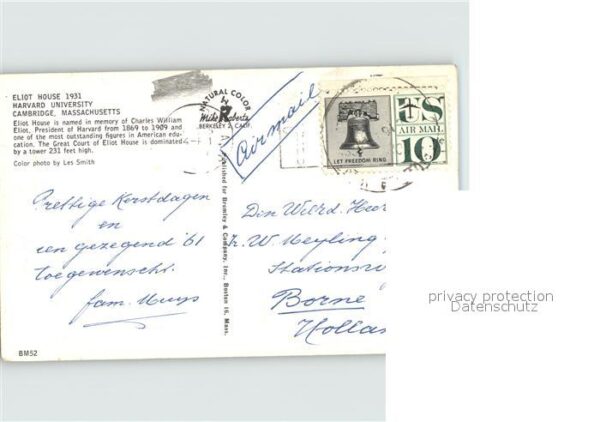 ELIOT HOUSE 1931
HARVARD UNIVERSITY
CAMBRIDGE, MASSACHUSETTS
Eliot House is named in memory of Charles William
Eliot, President of Harvard from 1869 to 1909 and
one of the most outstanding figures in American edu-
cation. The Great Court of Eliot House is dominated
by a tower 231 feet high.
Color photo by Les Smith
NATURAL COLOR
Mike Roberts
BERKELEY 2, CALIF.
Airmail
LET FREEDOM RING
US
AIR MAIL
10¢
Published for Bromley & Company, Inc., Boston 16, Mass.
Prettige Kerstdagen
en
een gezegend '61
toegewenscht.
fam.
Den
W. Meyling
Borne
Holla
BM52
privacy protection
Datenschutz